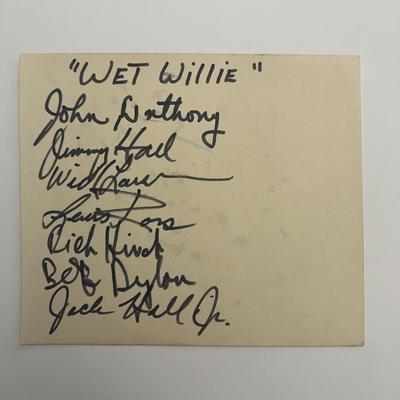 "WET Willie"
John Anthony
Jimmy Hall
Lewis Ross
Rick Hirsch
Bob Dylan
Jack Hall Jr.